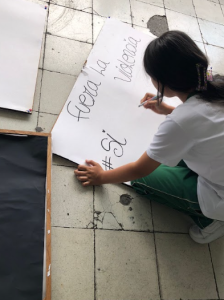 Fuera la
Violencia
# Si